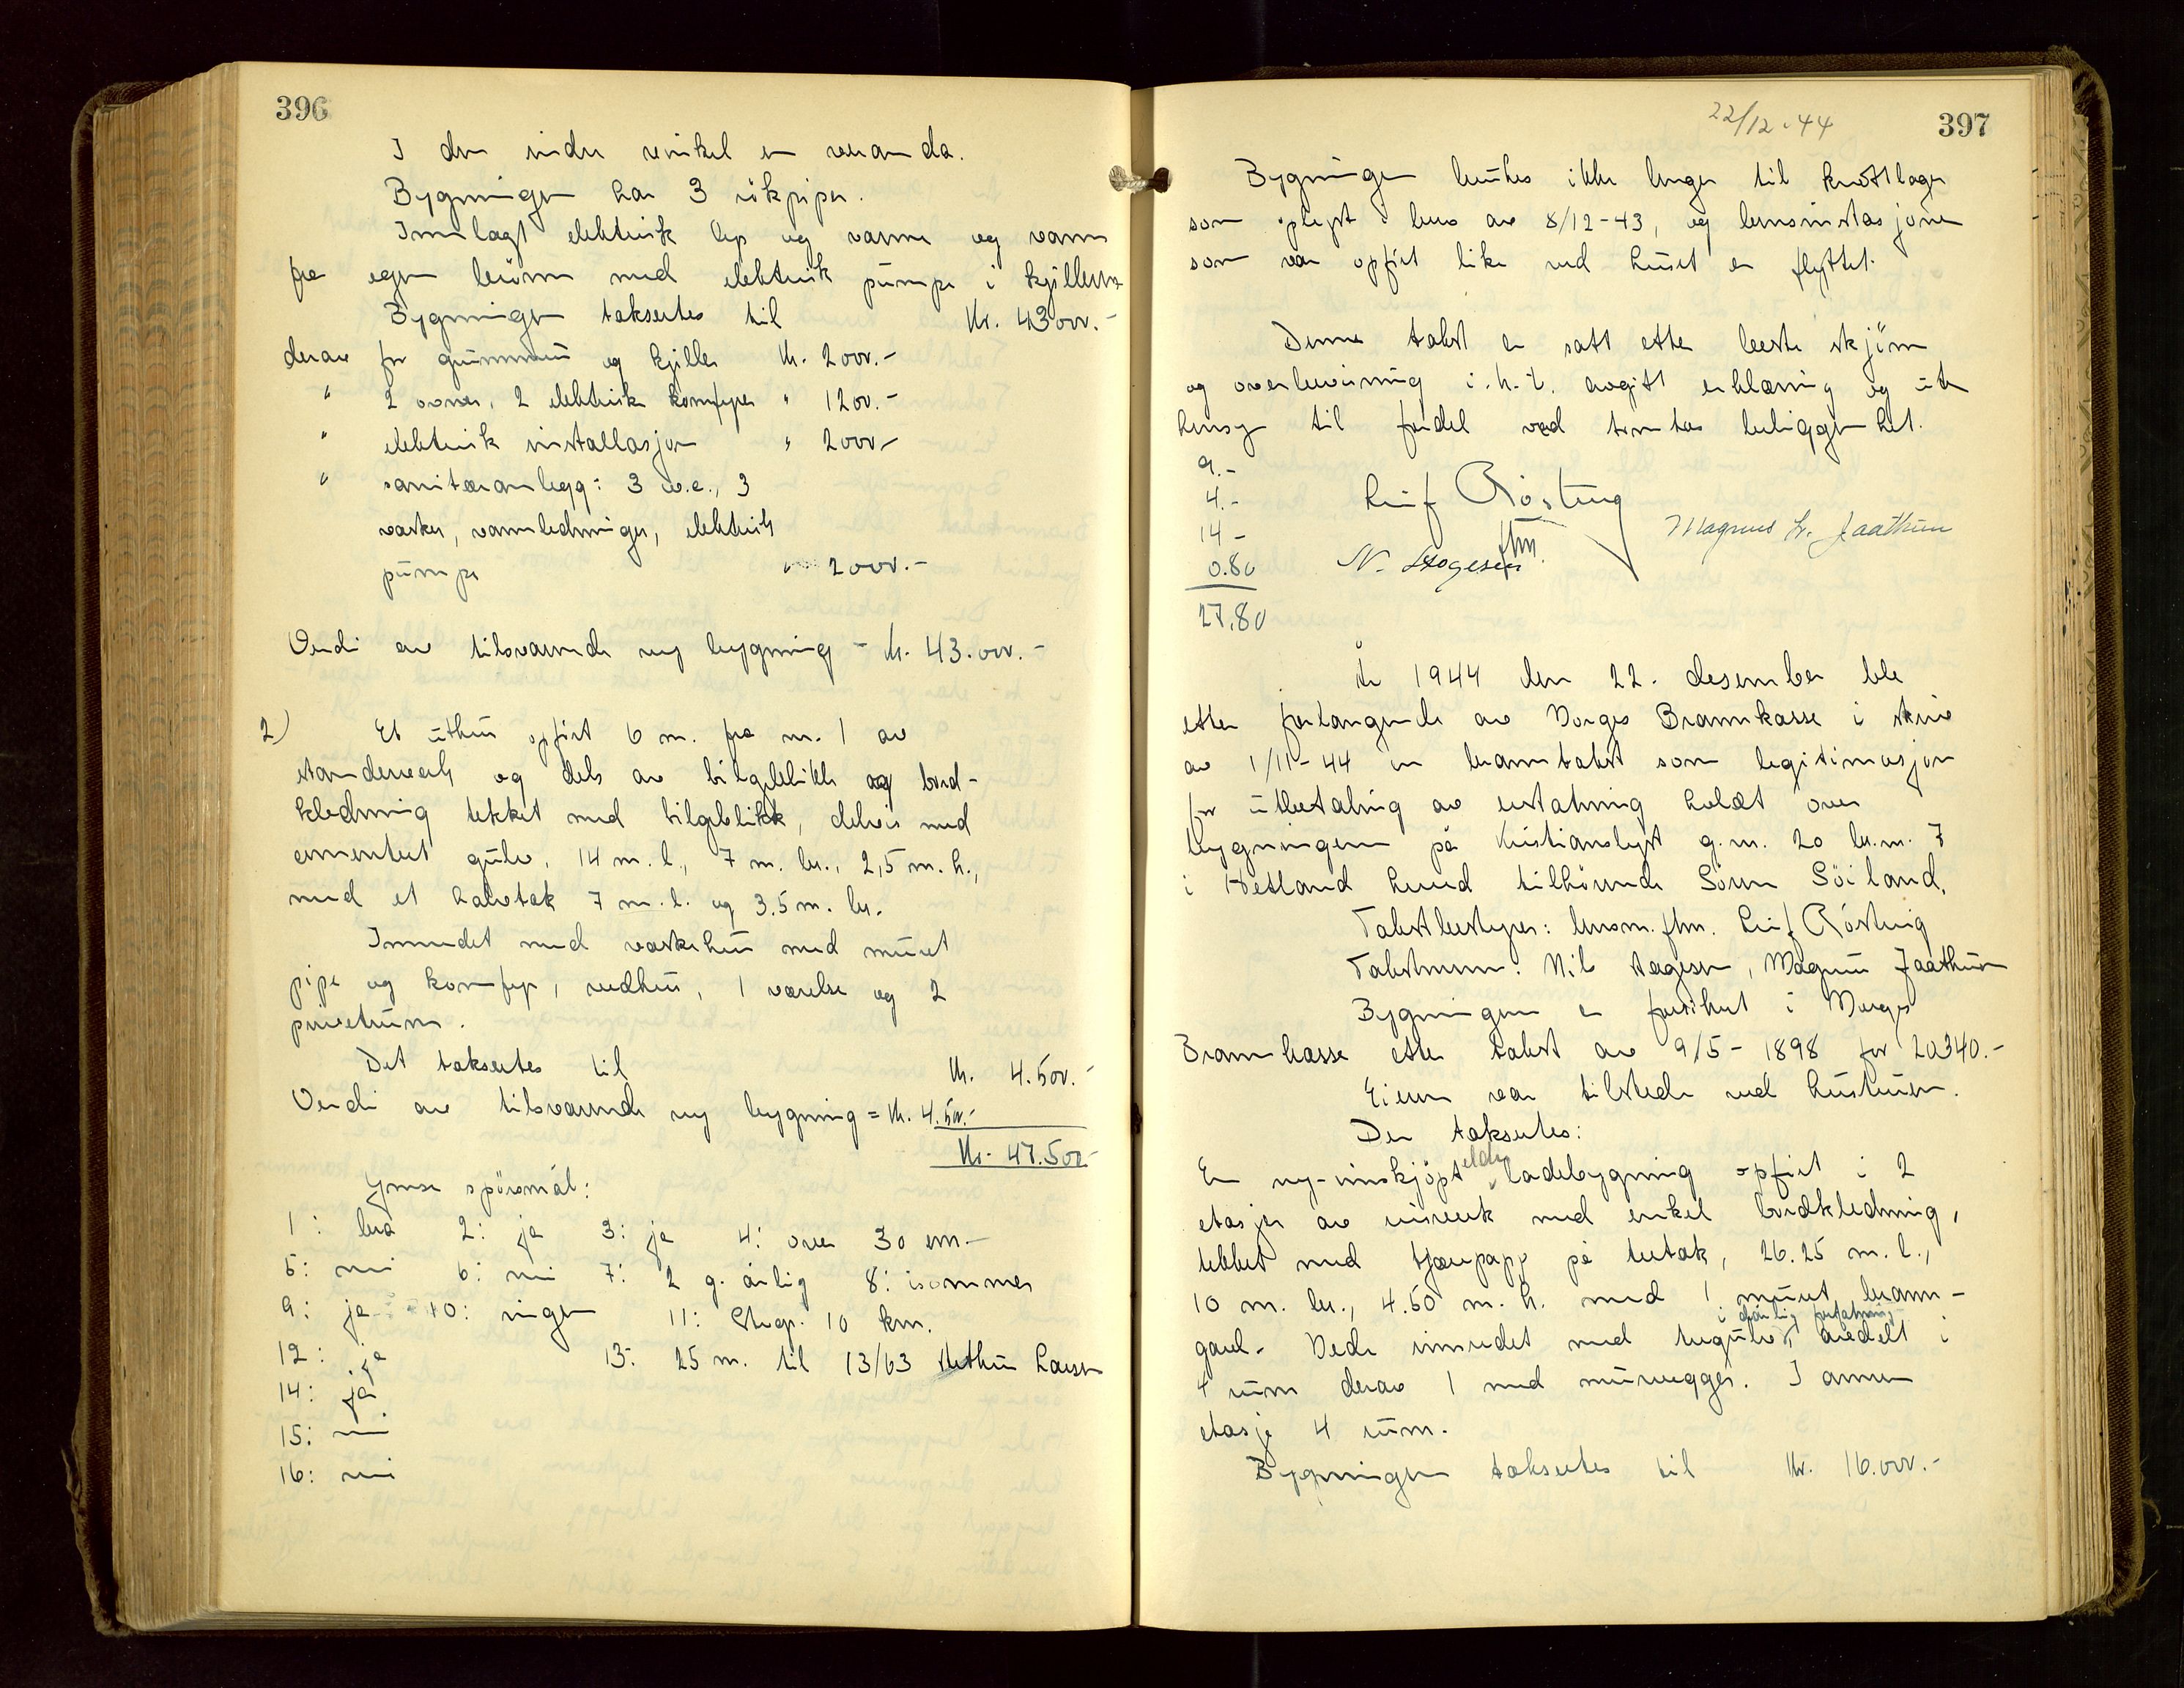 396
I den indre vinkel er veranda.
Bygningen har 3 rökpiper.
Innlagt elektrisk lys og varme og vann
fra egen brönn med elektrisk pumpe i kjelleren
Bygningen takseres til Kr. 43000.-
derav for grunnmur og kjeller Kr. 2000.-
" 2 ovner, 2 elektriske komfyrer " 1200.-
" elektrisk installasjon " 2000.-
" sanitæranlegg: 3 w.c., 3
vasker, vannledninger, elektrisk
pumpe " 2000.-
Verdi av tilsvarende ny bygning = Kr. 43.000.-
2) Et uthus opfört 6 m. fra nr. 1 av
standerverk og dels av bölgeblikk og bord-
kledning tekket med bölgeblikk, delvis med
cementert gulv, 14 m. l., 7 m. br., 2,5 m. h.,
med et halvtak 7 m. l. og 3.5 m. br.
Innredet med vaskehus med muret
pipe og komfyr, vedhus, 1 værelse og 2
privetrum.
Det takseres til Kr. 4.500.-
Verdi av tilsvarende ny bygning = Kr. 4.500.-
Kr. 47.500.-
Ymse spörsmål:
1: bra 2: ja 3: ja 4: over 30 cm.-
5: nei 6: nei 7: 2 g. årlig 8: isommer
9: ja 10: ingen 11: Stvgr. 10 km.
12: ja 13: 25 m. til 13/63 Larsen
14: ja
15: nei
16: nei
22/12-44
397
Bygningen brukes ikke lenger til kruttlager
som oplyst i brev av 8/12-43, og bensinstasjonen
som var opfört like ved huset er flyttet.
Denne takst er satt etter beste skjönn
og overbevisning i.h.t. avgitt erklæring og uten
hensyn til fordel ved tomtas beliggenhet.
9.-
4.-
14-
0.80
27,80
Leif Rösting
fhm.
Magnus L. Jaathun
N. Stegesen
År 1944 den 22. desember ble
etter forlangende av Norges Brannkasse i skriv
av 1/11-44 en branntakst som legitimasjon
for utbetaling av erstatning holdt over
bygningen på Kristianslyst g.nr. 20 br.nr. 7
i Hetland herred tilhörende Sören Söiland.
Takstbestyrer: lensm. fhm. Leif Rösting
Takstmenn: Nils Stegesen, Magnus Jaathun
Bygningen er forsikret i Norges
Brannkasse etter takst av 9/5-1898 for 20340.-
Eieren var tilstede ved hustruen.
Der takseres:
En ny-innskjöpt eldre ladebygning opfört i 2
etasjer av reisverk med enkel bordkledning,
tekket med tjærepapp på tretak, 26.25 m. l.,
10 m. br., 4.50 m. h. med 1 muret brann-
gavl. Nede innredet med tregulv i dårlig forfatning avdelt i
4 rum derav 1 med murvegger. I annen
etasje 4 rum.
Bygningen takseres til Kr. 16.000.-